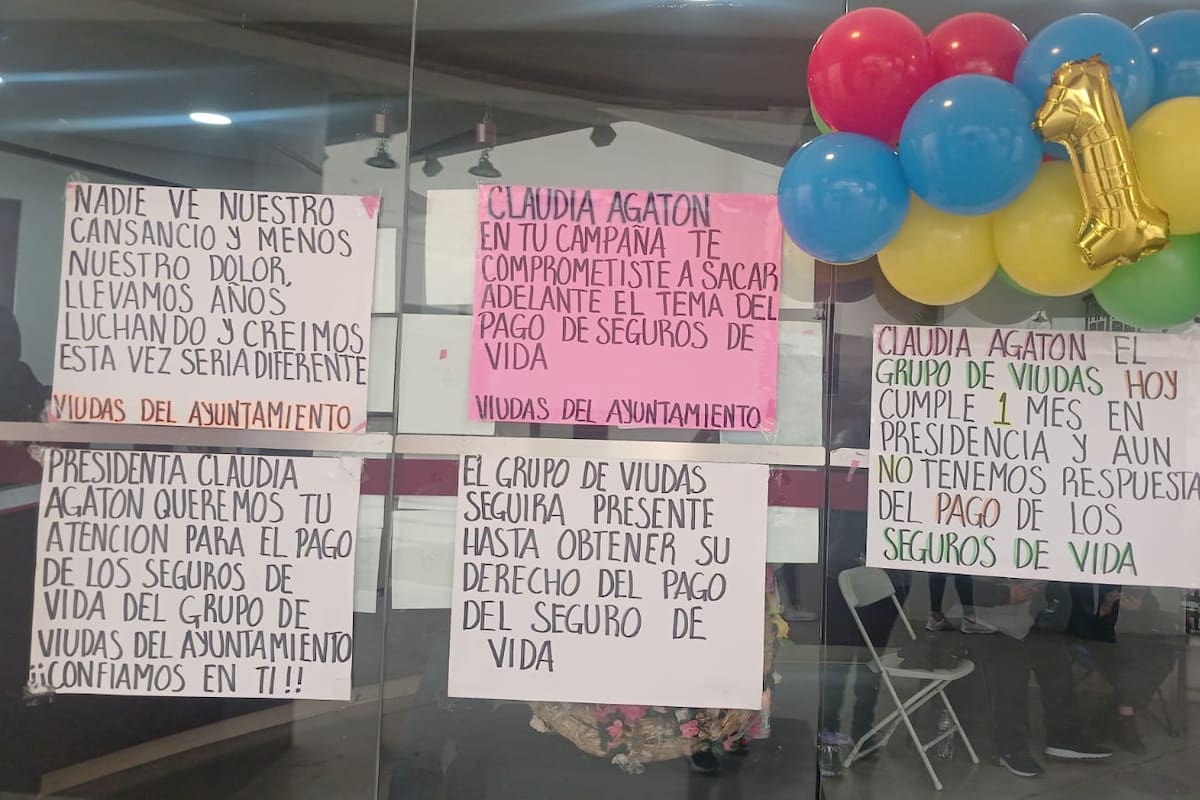 NADIE VE NUESTRO
CANSANCIO Y MENOS
NUESTRO DOLOR,
LLEVAMOS AÑOS
LUCHANDO Y CREIMOS
ESTA VEZ SERIA DIFERENTE
VIUDAS DEL AYUNTAMIENTO
CLAUDIA AGATON
EN TU CAMPAÑA TE
COMPROMETISTE A SACAR
ADELANTE EL TEMA DEL
PAGO DE SEGUROS DE
VIDA
VIUDAS DEL AYUNTAMIENTO
1
CLAUDIA AGATON EL
GRUPO DE VIUDAS HOY
CUMPLE 1 MES EN
PRESIDENCIA Y AUN
NO TENEMOS RESPUESTA
DEL PAGO DE LOS
SEGUROS DE VIDA
PRESIDENTA CLAUDIA
AGATON QUEREMOS TU
ATENCION PARA EL PAGO
DE LOS SEGUROS DE
VIDA DEL GRUPO DE
VIUDAS DEL AYUNTAMIENTO
¡¡CONFIAMOS EN TI!!
EL GRUPO DE VIUDAS
SEGUIRA PRESENTE
HASTA OBTENER SU
DERECHO DEL PAGO
DEL SEGURO DE
VIDA